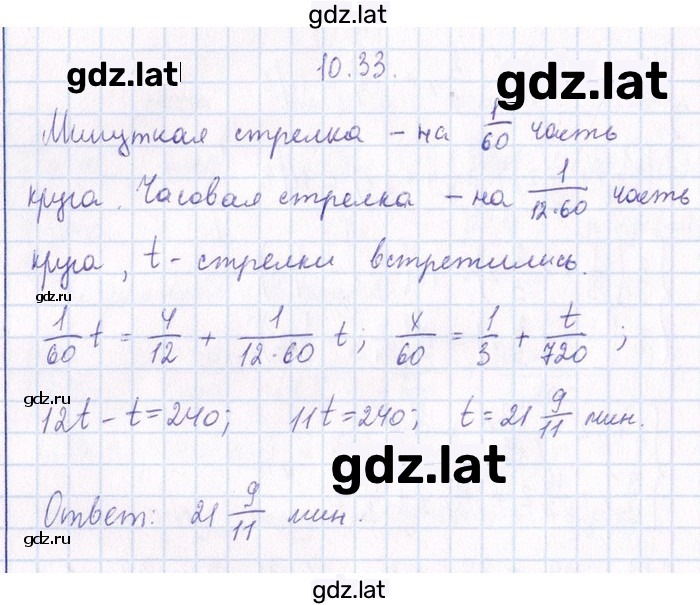 gdz.lat
10.33.
gdz.lat
gdz.lat
Минуткая стрелка – на 1/60 часть
круга. Часовая стрелка – на 1/(12·60) часть
круга, t – стрелки встретились.
gdz.ru
1/60 t = 4/12 + 1/(12·60) t; x/60 = 1/3 + t/720;
gdz.ru
12t – t = 240; 11t = 240; t = 21 9/11 мин.
gdz.lat
Ответ: 21 9/11 мин.
gdz.ru
gdz.lat